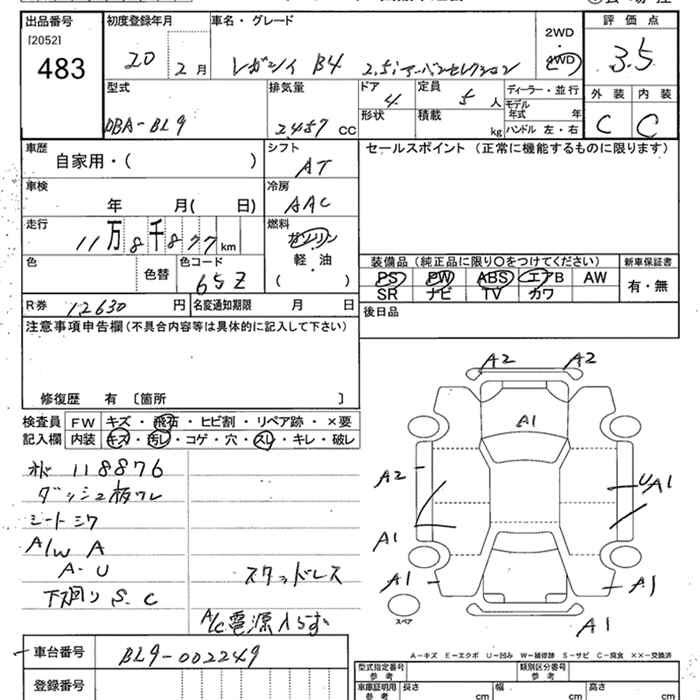 出品番号 初度登録年月 車名・グレード 2WD 評価点
[2052]
483 20 2月 レガシィ B4 2.5iアーバンセレクション 4WD 3.5
型式 排気量 ドア 定員 ディーラー・並行 外装 内装
DBA-BL9 2457 CC 4 5人 モデル年式 年 C C
形状 積載 kg ハンドル 左・右
車歴 自家用・( ) シフト AT セールスポイント (正常に機能するものに限ります)
車検 年 月( 日) 冷房 AAC
走行 11万8千877km 燃料 ガソリン
軽・油
( )
色 色替 色コード 65Z
装備品 (純正品に限り○をつけてください) 新車保証書
PS PW ABS エアB AW 有・無
SR ナビ TV カワ
R券 12630円 名変通知期限 月 日 後日品
注意事項申告欄 (不具合内容等は具体的に記入して下さい)
修復歴 有 〔箇所 〕
検査員 FW キズ・飛石・ヒビ割・リペア跡・×要
記入欄 内装 キズ・汚レ・コゲ・穴・スレ・キレ・破レ
118876
ダッシュ板ワレ
シートシワ
A/W A
A-U
下廻り S.C
スタッドレス
A/C電源入らず
A2 A2
A1
A2 UA1
A1
A1 A1
スペア
A1
A-キズ E-エクボ U-凹み W-補修跡 S-サビ C-腐食 XX-交換済
車台番号 BL9-002249
登録番号
型式指定番号 参考 類別区分番号 参考
車庫証明用 参考 長さ cm 幅 cm 高さ cm